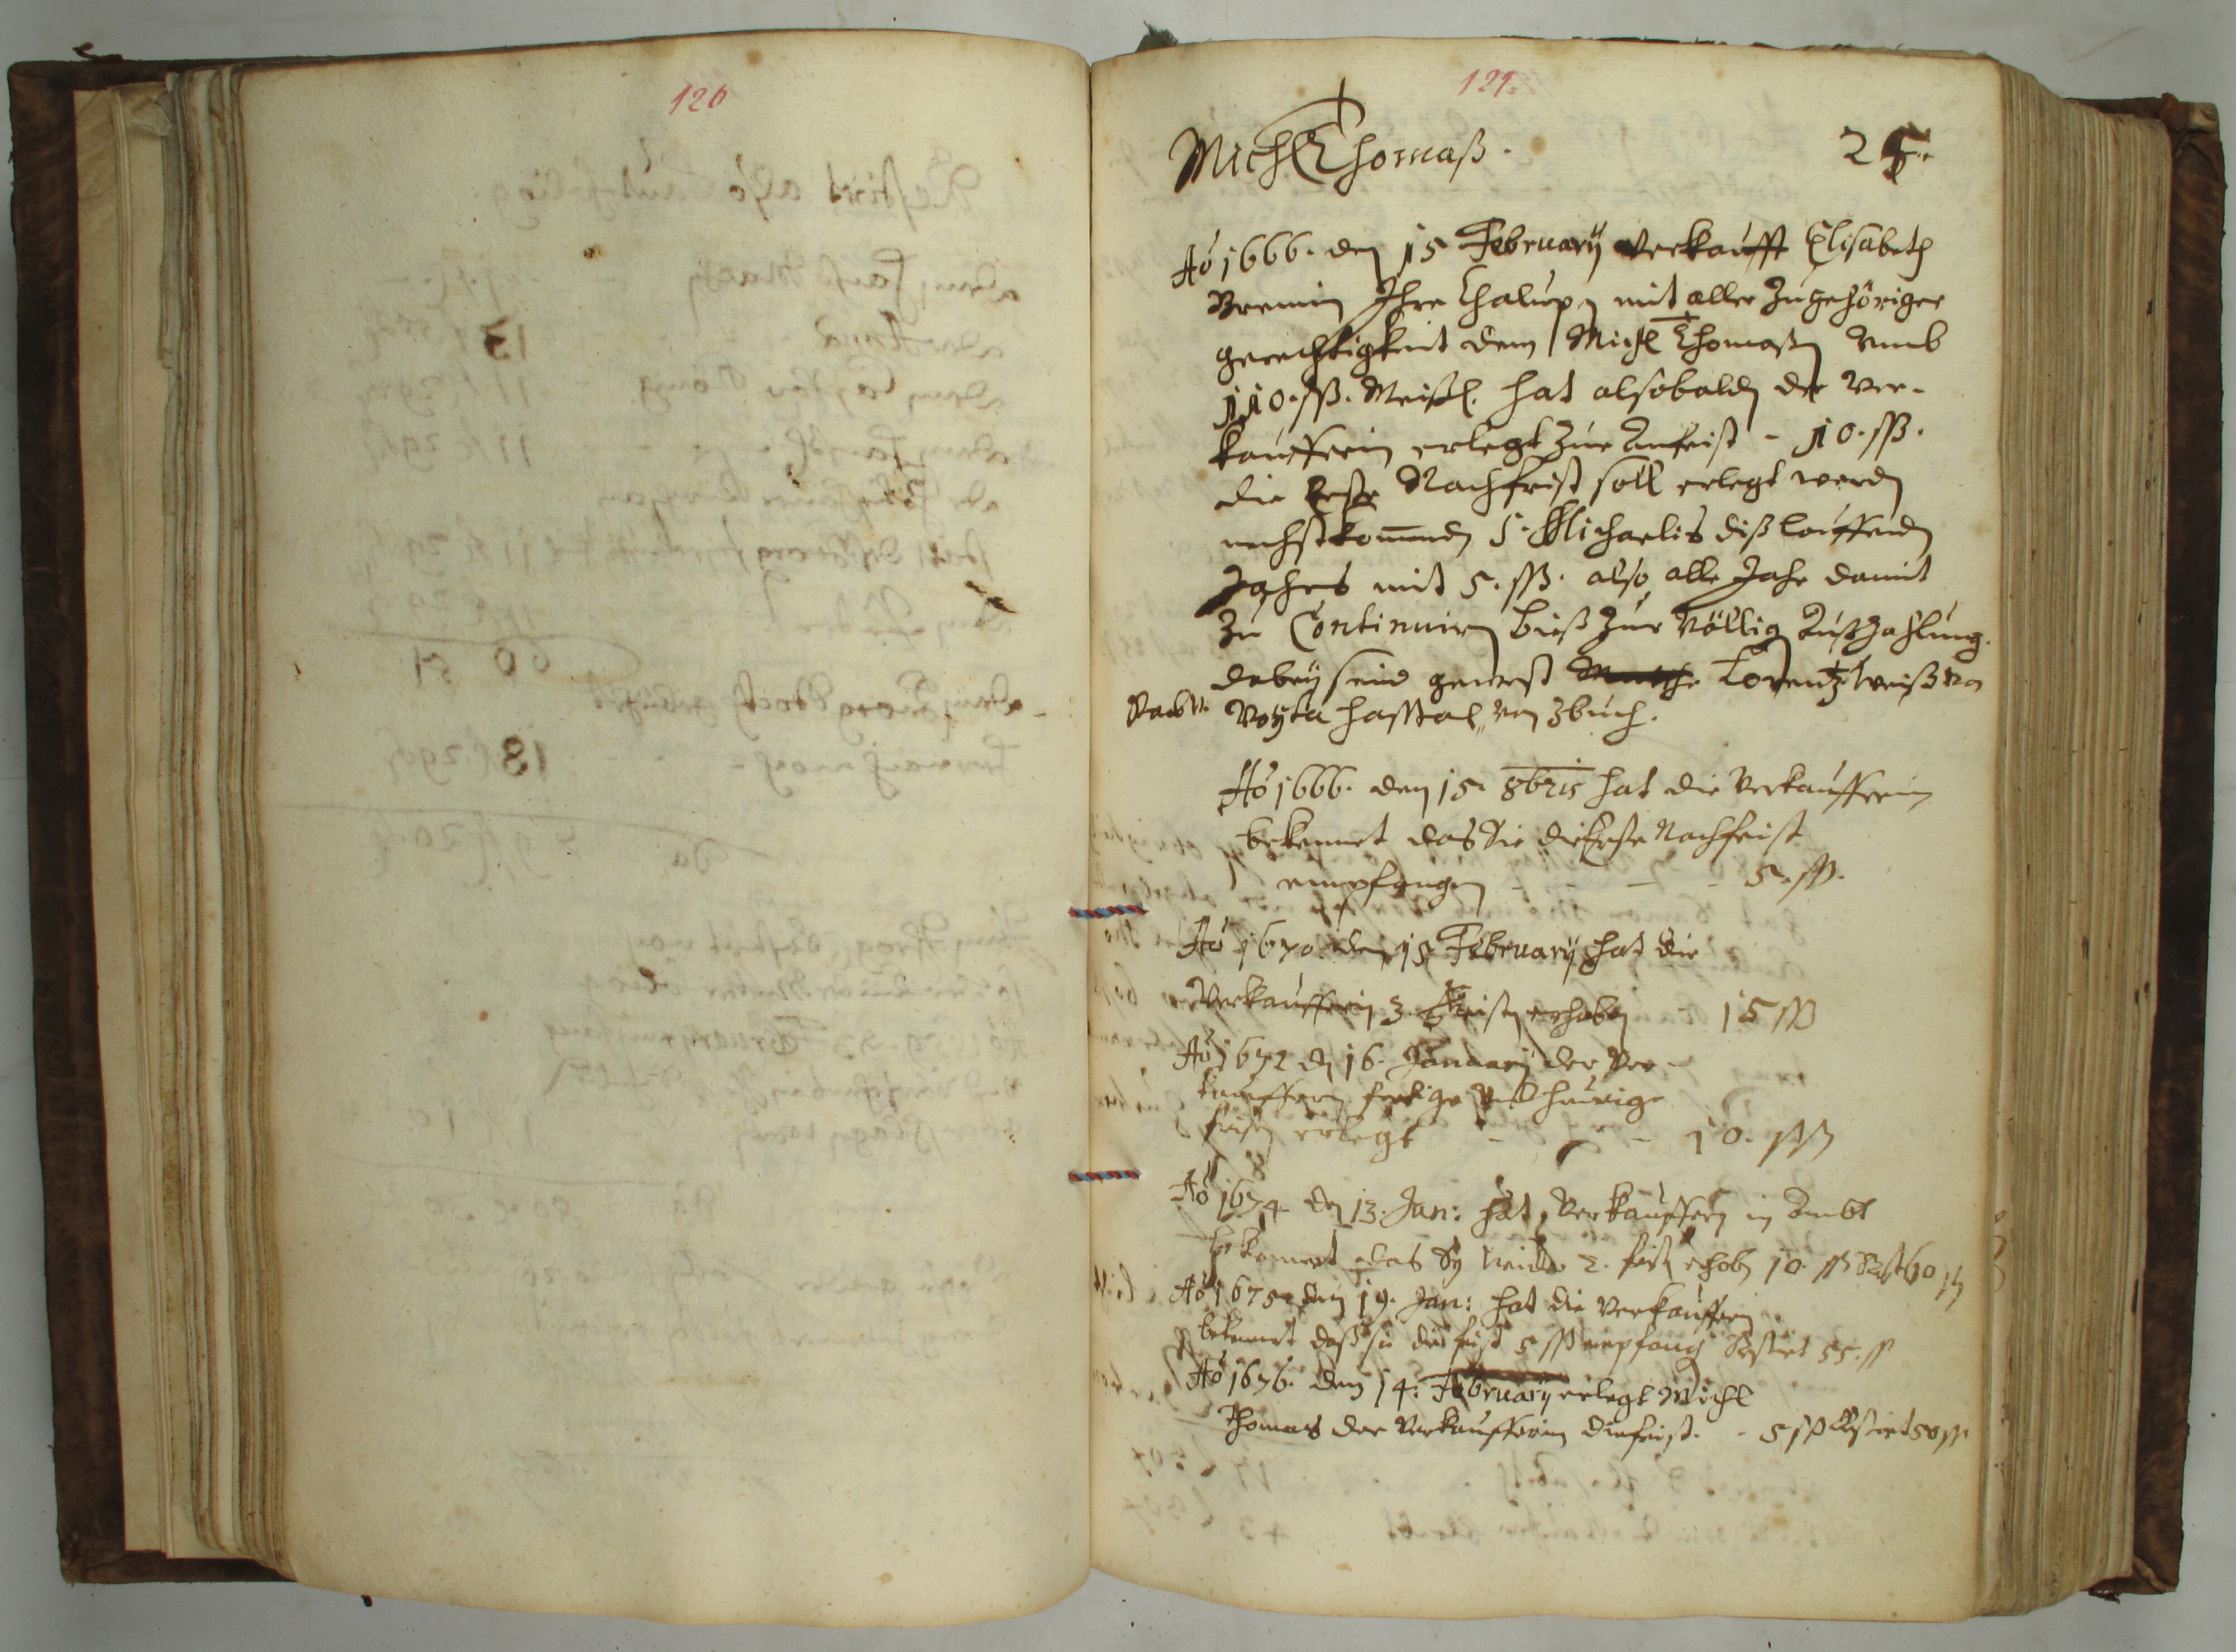 126
121.
Michl Thomaß.
Aõ 1666. den 15 February verkaufft Elisabeth
Ihre Chalupn mit aller Zugehöriger
gerechtigkeit dem Michl Thomaßn umb
110. ßß. Meißl. hat alsobaldn der Ver-
kaufferin erlegt zur Anfrist - 10. ßß.
die Erste Nachfrist soll erlegt werdn
nechstkommendn S. Michaelis diß lauffendn
Jahrs mit 5. ßß. also alle Jahr damit
zu Continuirn bieß zur völlign Außzahlung.
dabey seind gewest Lorentz Weiß von
Voyta von Zbuch.
Aõ 1666. den 15. 8bris hat die Verkaufferin
bekennet das Sie die Erste Nachfrist
empfangen - - - 5. ßß.
Aõ 1670. den 15 February hat die
Verkaufferin 3. fristn erhobn 15 ßß
Aõ 1672 dn 16. January der Ver-
kaufferin fertige und heurige
fristn erlegt - - 10. ßß
Aõ 1674. den 13. Jan: hat Verkaufferin in Ambt
bekennet das Sy 2. frist erhobn 10. ßß Rest 60 ßß
Aõ 1675. den 19. Jan: hat die Verkaufferin
bekennet daß sie die frist 5 ßß empfang Restiet 55. ß
Aõ 1676. den 14. February erlegt Michl
Thomas der Verkaufferin die frist. - 5 ßß Restiret 50 ßß